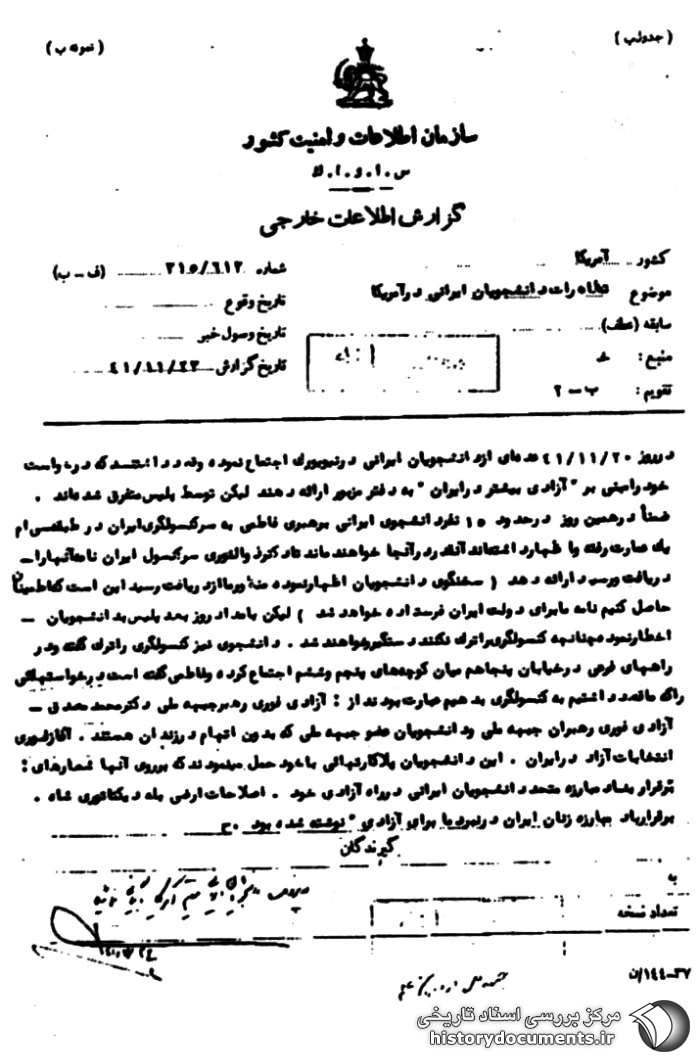 ( جدول ب )
( نمونه ب )
سازمان اطلاعات و امنیت کشور
س . ا . و . ا . ک
گزارش اطلاعات خارجی
کشور آمریکا
شماره ۳۱۵/۶۱۲ (ف - ب)
موضوع تظاهرات دانشجویان ایرانی در آمریکا
تاریخ وقوع
سابقه (عطف):
تاریخ وصول خبر
منبع :
تاریخ گزارش ۴۱/۱۱/۲۳
تقویم : ب - ۲
در روز ۴۱/۱۱/۲۰ عده‌ای از دانشجویان ایرانی در نیویورک اجتماع نموده و در داشتند که درخواست
خود را مبنی بر " آزادی بیشتر در ایران " به دفتر مزبور ارائه دهند لیکن توسط پلیس متفرق شده‌اند .
ضمناً در همین روز در حدود ۱۵ نفر دانشجوی ایرانی برهبری فاطمی به سرکنسولگری ایران در طبقه سی‌ام
یک عمارت رفته و اظهار داشته‌اند آنقدر در آنجا خواهند ماند تا دکتر سرکنسول ایران نامه آنها را -
دریافت و رسید ارائه دهد ( سخنگوی دانشجویان اظهار نموده منظور ما از دریافت رسید این است که اطمینان
حاصل کنیم نامه ما برای دولت ایران فرستاده خواهد شد ) لیکن بامداد روز بعد پلیس به دانشجویان -
اخطار نمود چنانچه کنسولگری را ترک نکنند دستگیر خواهند شد . دانشجوی نیز کنسولگری را ترک گفته و در
راههای فرعی در خیابان پنجاهم میان کوچه‌های پنجم و ششم اجتماع کرده و فاطمی گفته است درخواستهائی
را که ما قصد داشتیم به کنسولگری بدهیم عبارت بودند از : آزادی فوری رهبر جبهه ملی دکتر محمد مصدق -
آزادی فوری رهبران جبهه ملی و دانشجویان عضو جبهه ملی که بدون اتهام در زندان هستند . آغاز فوری
انتخابات آزاد در ایران . این دانشجویان پلاکارتهائی با خود حمل مینمودند که بر روی آنها شعارهای :
برقرار باد مبارزه متحد دانشجویان ایرانی در راه آزادی خود . اصلاحات ارضی بله دیکتاتوری شاه .
برقرار باد مبارزه زنان ایران در نبرد ما برای آزادی " نوشته شده بود .
گیرندگان
به
تعداد نسخه
۳۷-۱۴۴/ن
مرکز بررسی اسناد تاریخی
historydocuments.ir